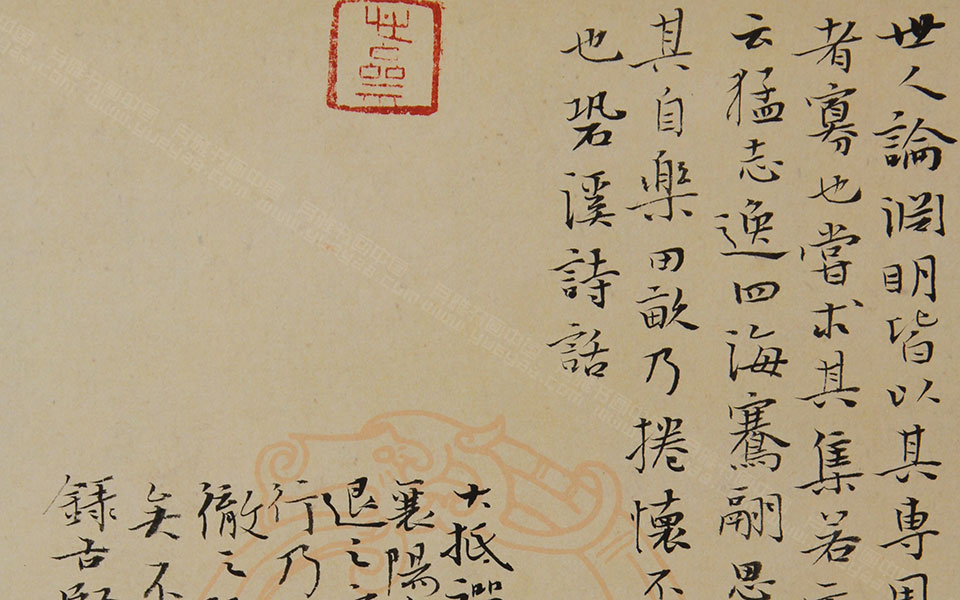 世人論淵明皆以其専
者寡也嘗求其集若
云猛志逸四海騫翮思
其自樂田畝乃捲懷不
也碧溪詩話
大抵禪
襄陽
退之
行乃
徹之
矣不
錄古